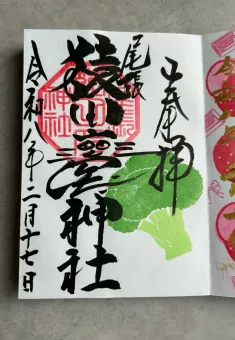 奉拝
尾張
猿田彦神社
令和八年二月十七日